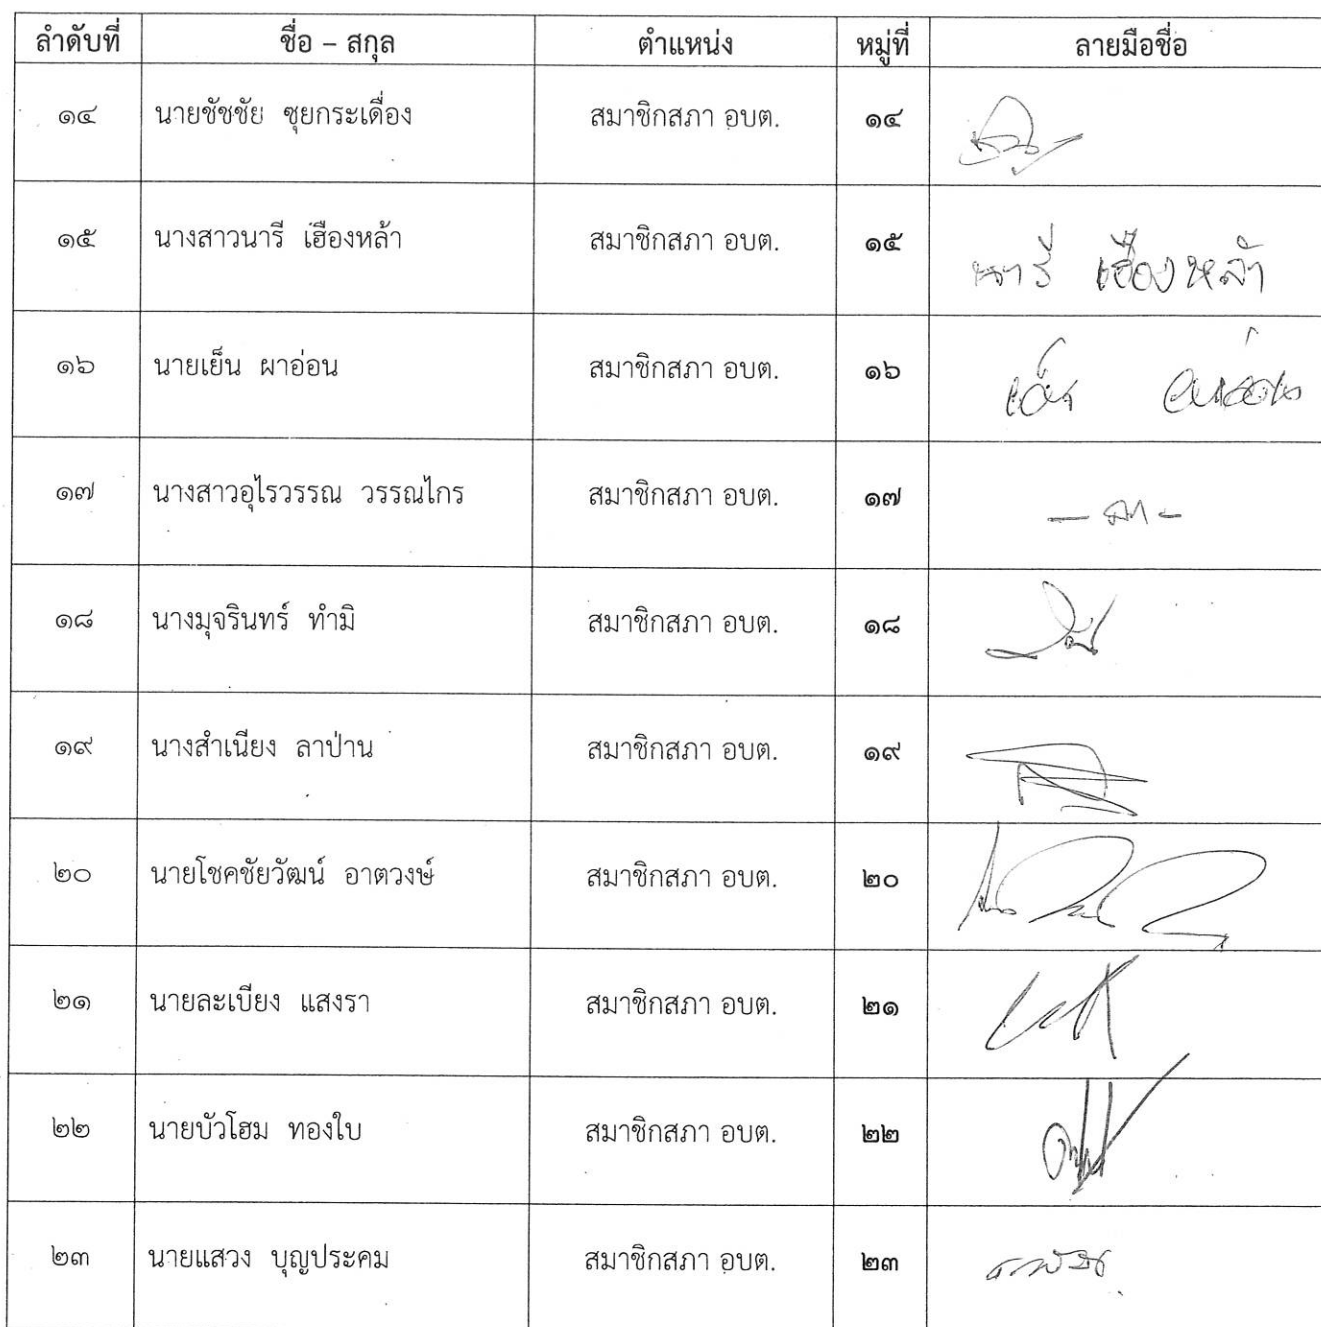 ลำดับที่ ชื่อ – สกุล ตำแหน่ง หมู่ที่ ลายมือชื่อ
๑๔ นายชัชชัย ซุยกระเดื่อง สมาชิกสภา อบต. ๑๔
๑๕ นางสาวนารี เฮืองหล้า สมาชิกสภา อบต. ๑๕ นารี เฮืองหล้า
๑๖ นายเย็น ผาอ่อน สมาชิกสภา อบต. ๑๖
๑๗ นางสาวอุไรวรรณ วรรณไกร สมาชิกสภา อบต. ๑๗ – ลา -
๑๘ นางมุจรินทร์ ทำมิ สมาชิกสภา อบต. ๑๘
๑๙ นางสำเนียง ลาป่าน สมาชิกสภา อบต. ๑๙
๒๐ นายโชคชัยวัฒน์ อาตวงษ์ สมาชิกสภา อบต. ๒๐
๒๑ นายละเบียง แสงรา สมาชิกสภา อบต. ๒๑
๒๒ นายบัวโฮม ทองใบ สมาชิกสภา อบต. ๒๒
๒๓ นายแสวง บุญประคม สมาชิกสภา อบต. ๒๓